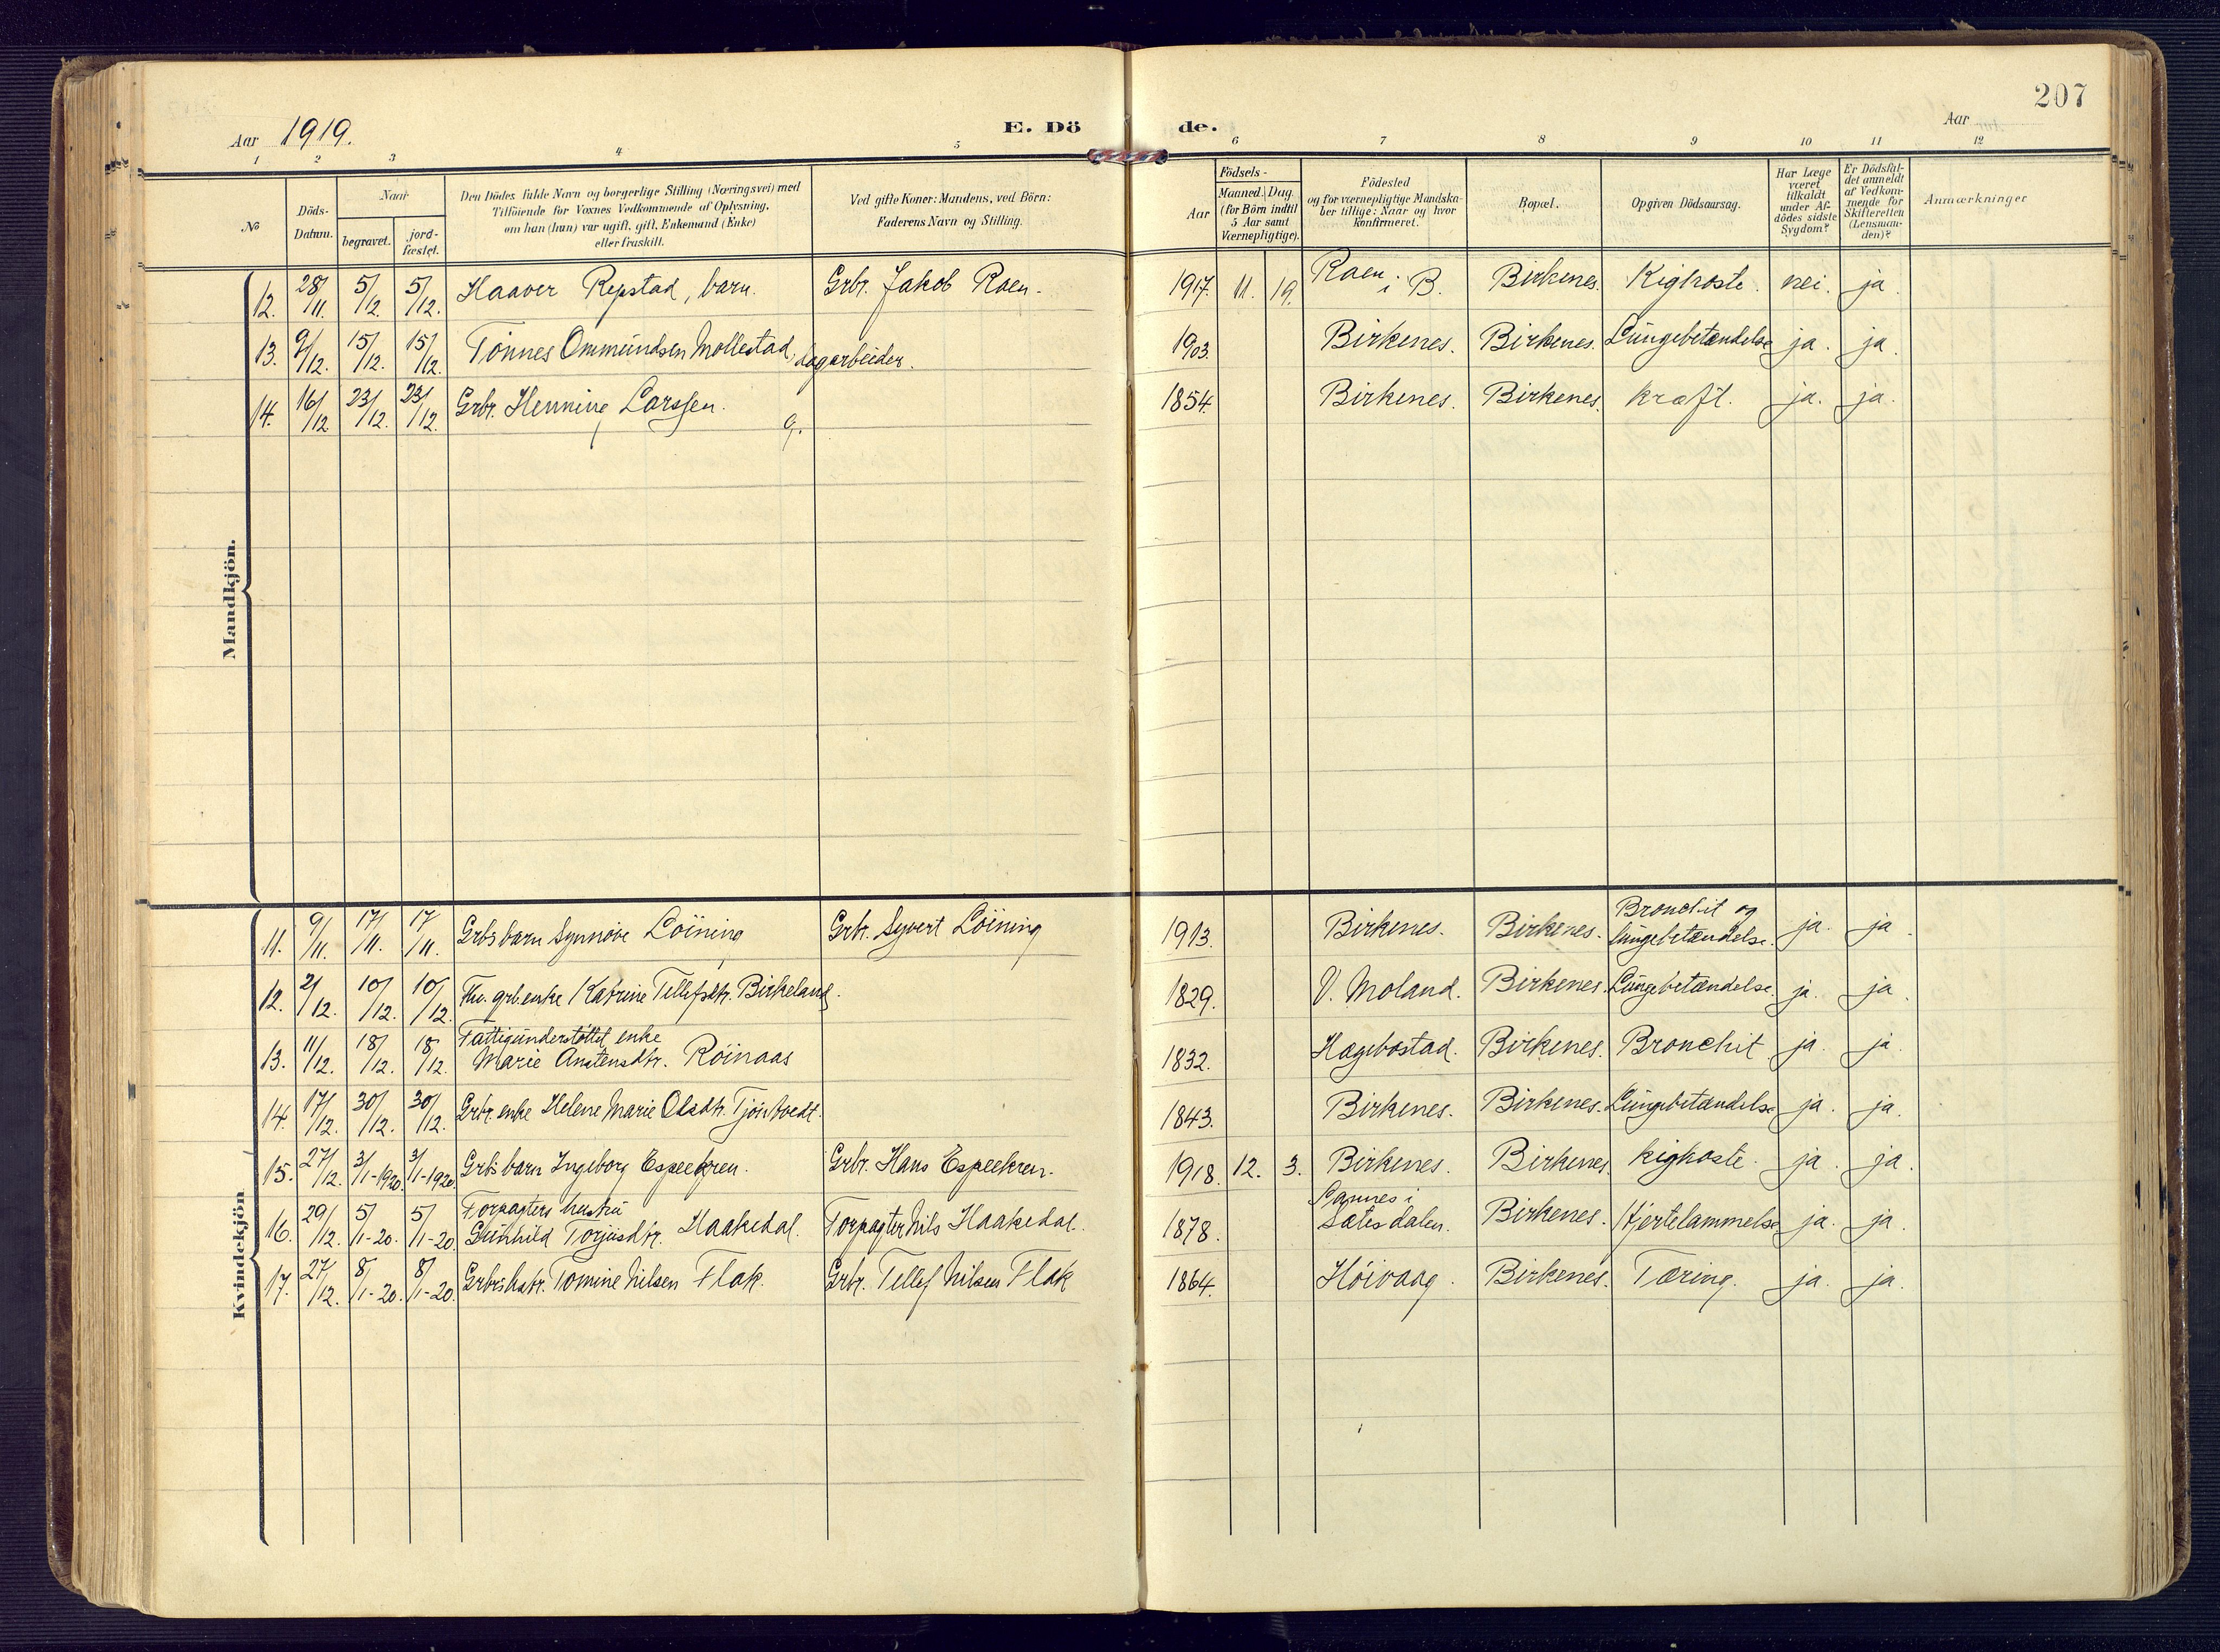 207
Aar 1919.
E. Dö de.
Aar
1 2 3 4 5 6 7 8 9 10 11 12
№
Döds-Datum.
Naar
begravet.
jord-fæstet.
Den Dödes fulde Navn og borgerlige Stilling (Næringsvei) med
Tilföiende for Voxnes Vedkommende af Oplysning,
om han (hun) var ugift, gift, Enkemand (Enke)
eller fraskilt.
Ved gifte Koner: Mandens, ved Börn:
Faderens Navn og Stilling.
Födsels-
Aar
Maaned. Dag.
(for Börn indtil
5 Aar samt
Værnepligtige).
Födested
og for værnepligtige Mandska-
ber tillige: Naar og hvor
konfirmeret.
Bopæl.
Opgiven Dödsaarsag.
Har Læge
været
tilkaldt
under Af-
dödes sidste
Sygdom?
Er Dödsfal-
det anmeldt
af Vedkom-
mende for
Skifteretten
(Lensman-
den)?
Anmærkninger
Mandkjön.
12. 28/11. 5/12. 5/12. Haaver Repstad, barn. Grbr. Jakob Raen. 1917. 11. 19. Raen i B. Birkenes. Kighoste. nei. ja.
13. 9/12. 15/12. 15/12. Tönnes Ommundsen Mollestad, dagarbeider. 1903. Birkenes. Birkenes. Lungebetændelse ja. ja.
14. 16/12 23/12. 23/12. Grbr. Henning Larssen. g. 1854. Birkenes. Birkenes. kræft. ja. ja.
Kvindekjön
11. 9/11. 17/11. 17/11. Grbs barn Synnöve Löining Grbr. Syvert Löining 1913. Birkenes. Birkenes. Bronchit og lungebetændelse. ja. ja
12. 2/12. 10/12. 10/12. Fhv. grb.enke Katrine Tellefsdtr. Birkeland. 1829. V. Moland. Birkenes. Lungebetændelse. ja. ja.
13. 11/12. 18/12. 18/12. Fattigunderstöttet enke Marie Anstensdtr. Röinaas 1832. Hægebostad. Birkenes. Bronchit ja. ja.
14. 17/12. 30/12. 30/12. Grbr. enke Helene Marie Olsdtr. Tjöntvedt. 1843. Birkenes. Birkenes. Lungebetændelse ja. ja.
15. 27/12. 3/1-1920. 3/1-1920. Grbs barn Ingeborg Espeekren. Grbr. Hans Espeekren. 1918. 12. 3. Birkenes. Birkenes. kighoste. ja. ja.
16. 29/12. 5/1-20. 5/1-20. Forpagters hustru Gunhild Torjusdtr. Haakedal. Forpagter Nils Haakedal. 1878. i Sætesdalen. Birkenes. Hjertelammelse ja. ja.
17. 27/12. 8/1-20. 8/1-20. Grbrs hstr. Tomine Nilsen Flak. Grbr. Tellef Nilsen Flak 1864. Höivaag. Birkenes. Tæring. ja. ja.